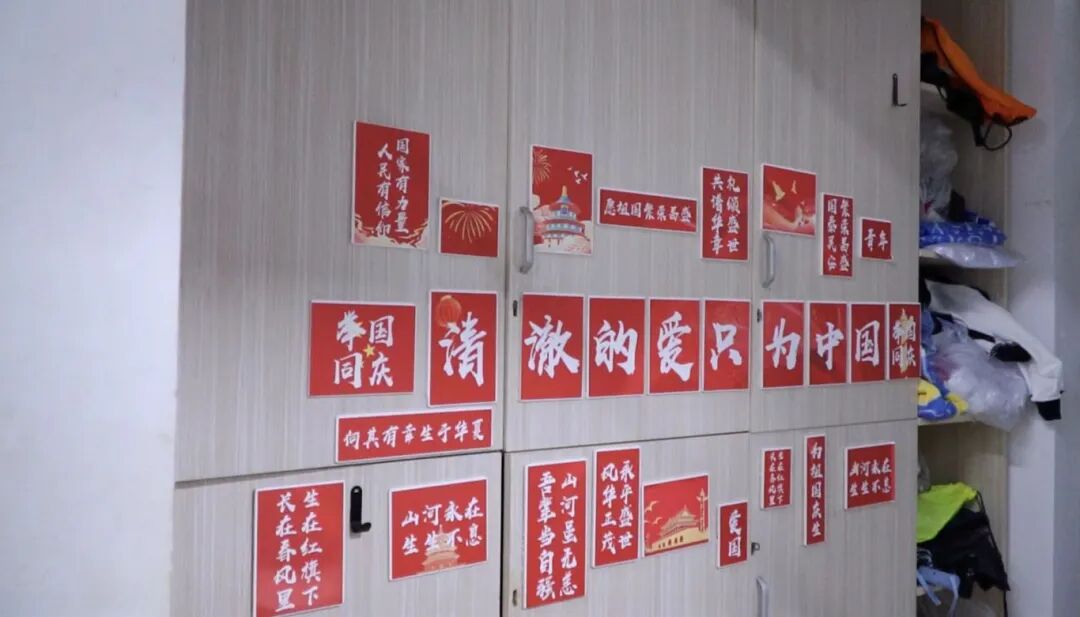 国家有力量
人民有信仰
愿祖国繁荣昌盛
礼颂盛世
共谱华章
繁荣昌盛
国泰民安
青年
举国
同庆
清澈的爱只为中国
举国
同庆
何其有幸生于华夏
生在红旗下
长在春风里
山河永在
生生不息
山河虽无恙
吾辈当自强
承平盛世
风华正茂
爱国
生在红旗下
长在春风里
为祖国庆生
山河永在
生生不息